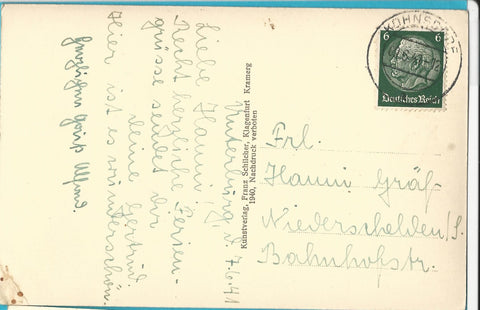 Unterburg, d. 7.6.41
Liebe Hanni!
Recht herzliche Ferien-
grüsse sendet dir
deine Gertrud.
Hier ist es wunderschön.
Herzlichen Gruß Alfred.
Kunstverlag, Franz Schilcher, Klagenfurt Kramerg
1940, Nachdruck verboten
KÜHNSDORF
6 6
Deutsches Reich
Frl.
Hanni Gräf
Niederschelden/S.
Bahnhofstr.